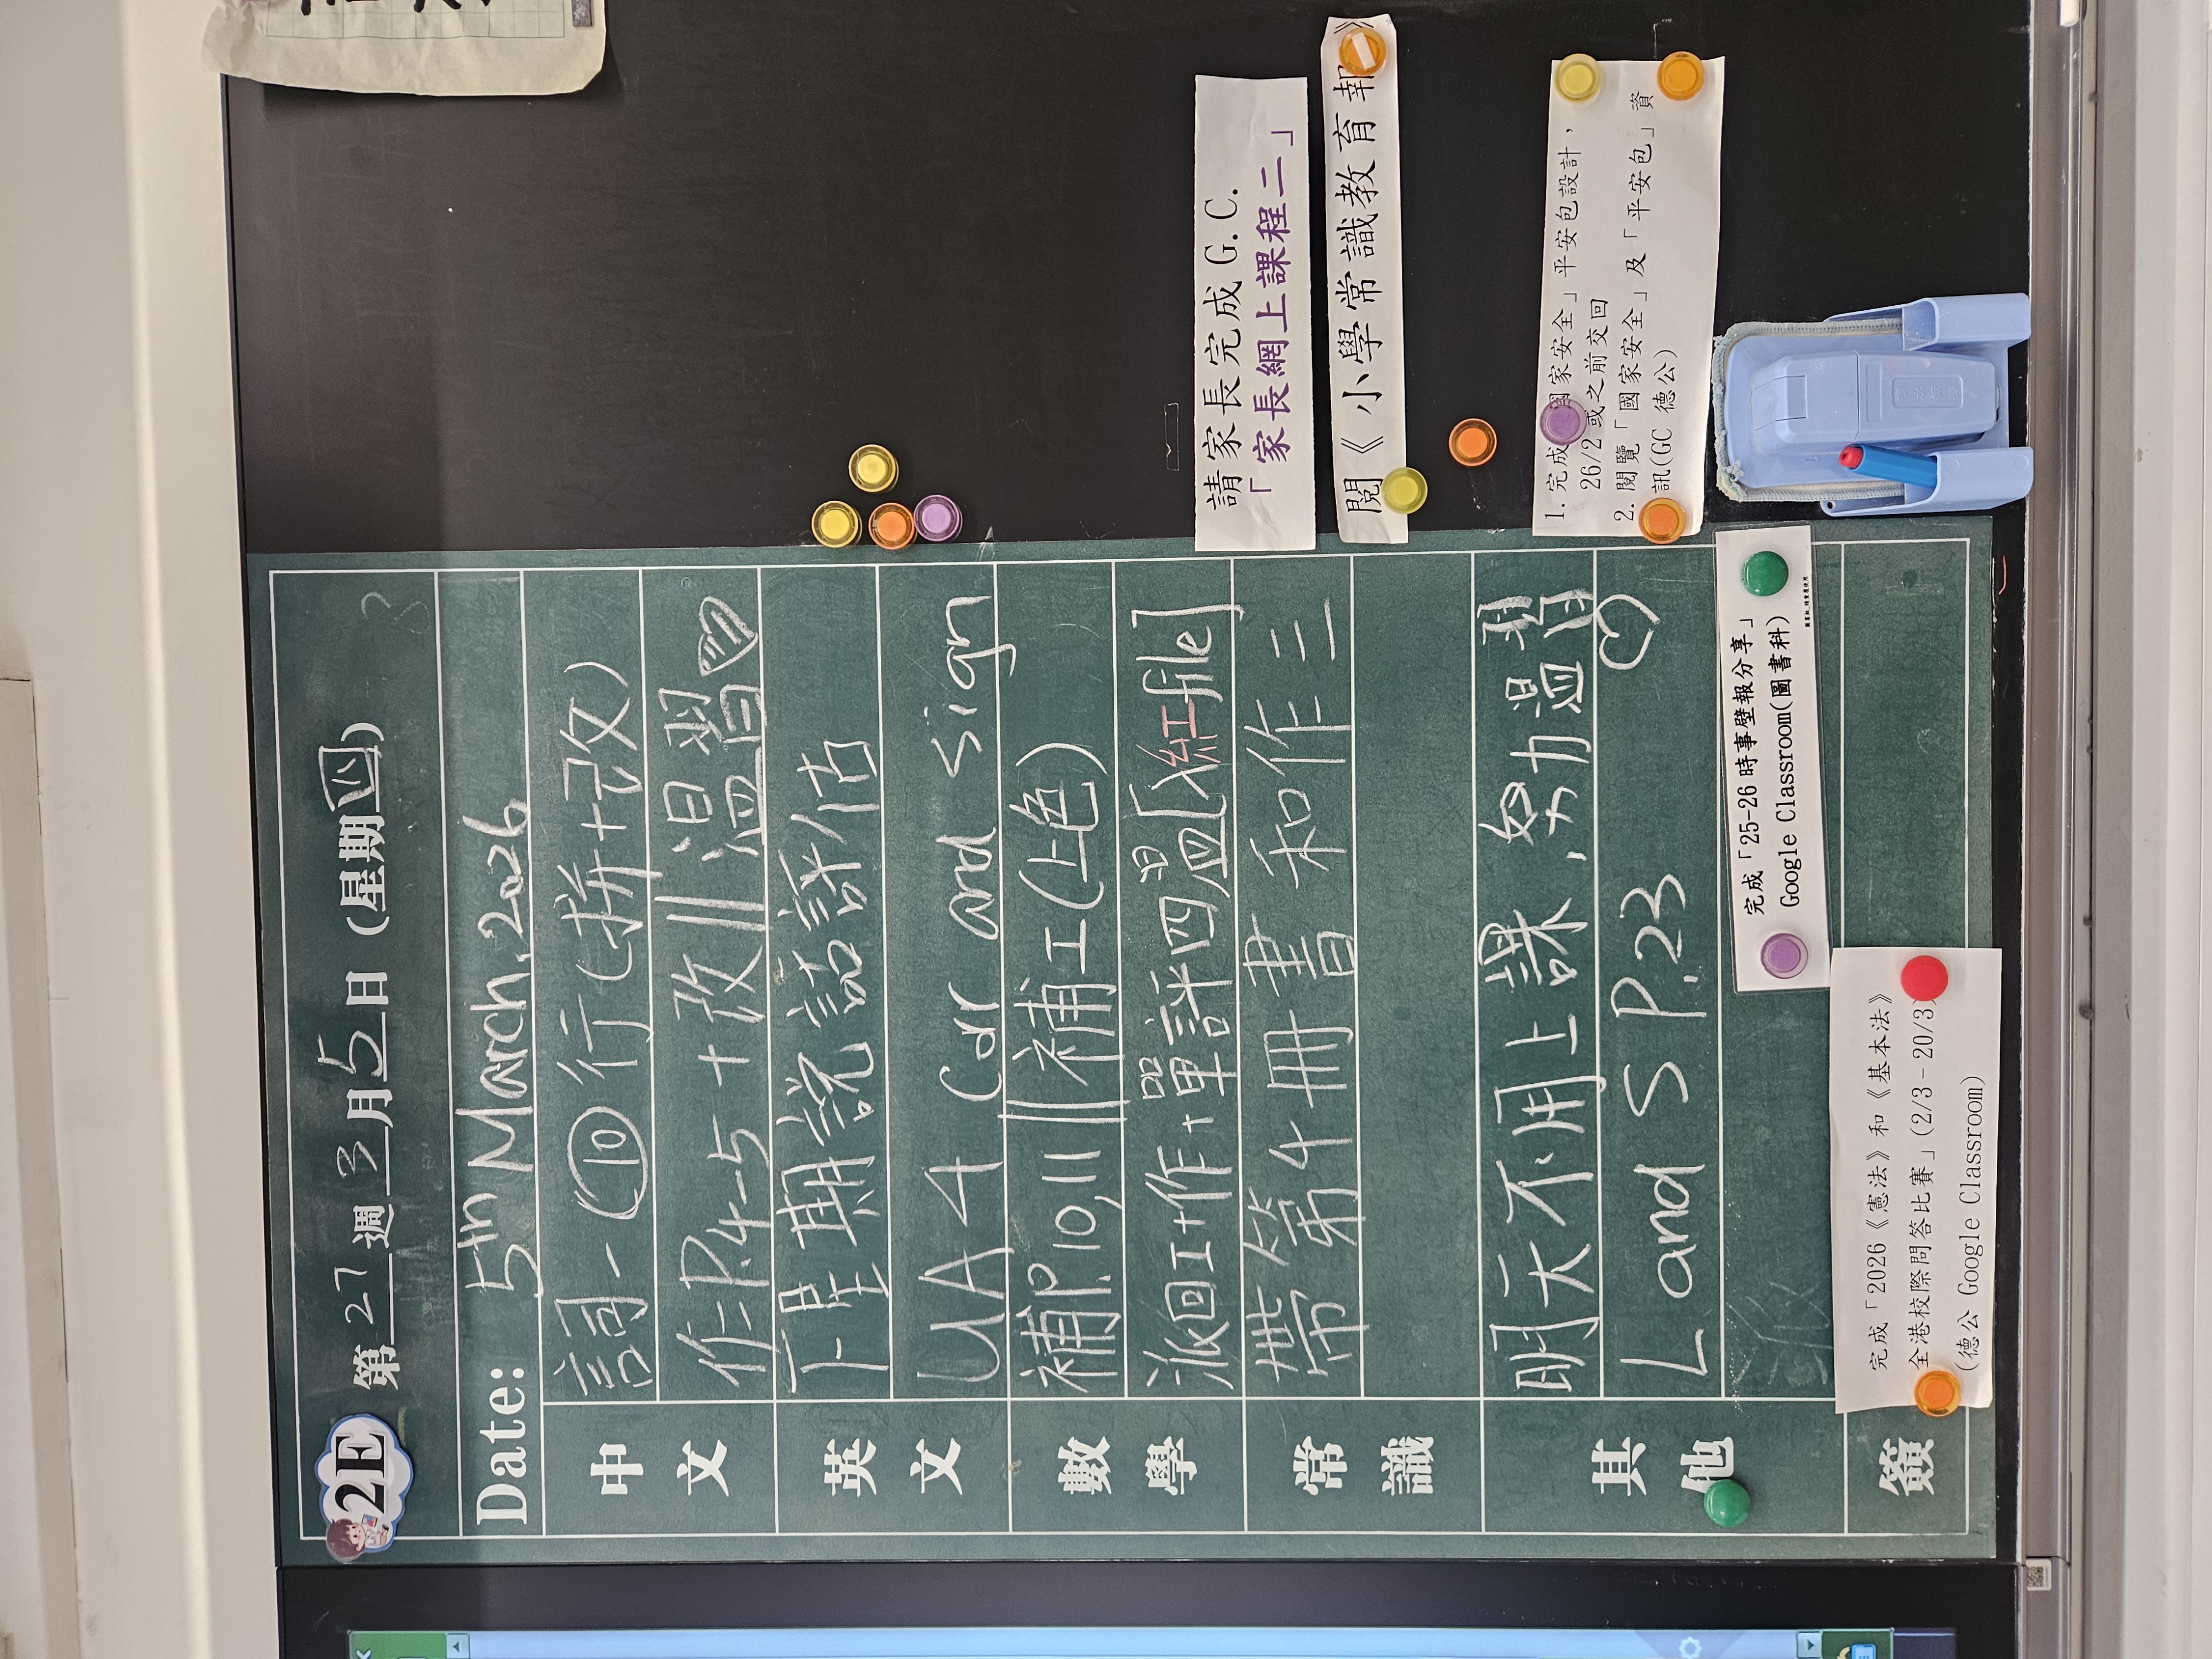 2E
第27週3月5日(星期四)
Date: 5th March,2026
中文
詞一⑩行(拼+改)
作二P.4-5+改‖溫習
英文
下星期說話評估
UA4 Corr and sign
數學
補P.10,11‖補工(上色)
派回工+作+單評四溫[入紅file]
常識
帶第4冊書和作三
其他
明天不用上課,努力溫習
L and S P.23
簽
請家長完成G.C.
「家長網上課程二」
閱《小學常識教育報》
1.完成「國家安全」平安包設計,
26/2或之前交回
2.閱覽「國家安全」及「平安包」資
訊(GC 德公)
完成「25-26時事壁報分享」
Google Classroom(圖書科)
完成「2026《憲法》和《基本法》
全港校際問答比賽」(2/3-20/3)
(德公 Google Classroom)